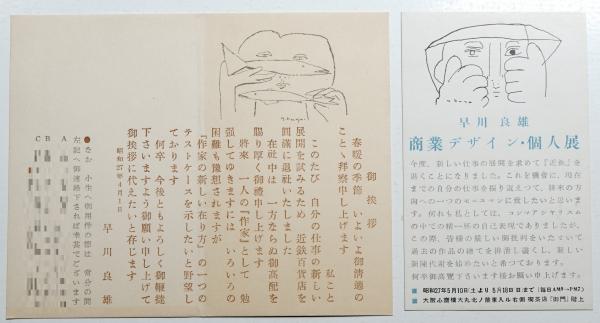 御挨拶
春暖の季節 いよいよ御清適の
ことゝ拜察申し上げます 私こと
このたび 自分の仕事の新しい
展開を試みるため 近鉄百貨店を
円満に退社いたしました
在社中は 一方ならぬ御高配を
賜り厚く御禮申し上げます
將來 一人の『作家』として 勉
强してゆきますには いろいろの
困難も豫想されますが
『作家の新しい在り方』の一つの
テストケースを示したいと野望し
ております
何卒 今後ともよろしく御鞭撻
下さいますよう御願い申し上げて
御挨拶に代えたいと存じます
昭和27年4月1日
早川良雄
●なお 小生へ御用件の節は 當分の間
左記へ御連絡下されば幸甚でございます
A
B
C
早川良雄
商業デザイン・個人展
今度、新しい仕事の展開を求めて『近鉄』を
退くことになりました。これを機會に、現在
までの自分の仕事を振り返つて、將來の方
向への一つのモニユマンに致したいと思いま
す。何れも私としては、コンマアシヤリズム
の中での精一杯の自己表現でありましたが、
この際、皆樣の嚴しい御批判をいただいて
過去の作品の總てを排泄し盡くし、新しい
新陳代謝を始めたいと希つております。
何卒御高覽下さいます樣お願い申上げます。
■ 昭和27年5月10日(土)より5月18日(日)まで(毎日AM9―PM7)
■ 大阪心齋橋大丸北ノ筋東入ル右側 喫茶店「御門」階上